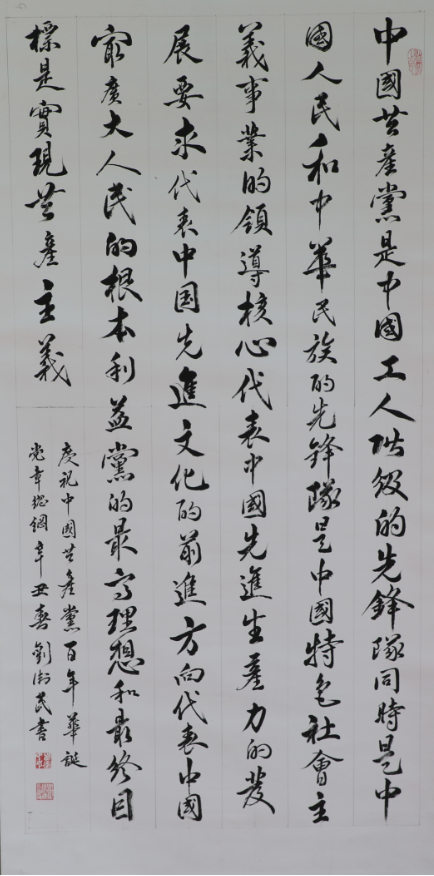 中國共產黨是中國工人階級的先鋒隊同時是中
國人民和中華民族的先鋒隊是中國特色社會主
義事業的領導核心代表中國先進生產力的發
展要求代表中国先進文化的前進方向代表中國
最廣大人民的根本利益黨的最高理想和最終目
標是實現共產主義
慶祝中國共產黨百年華誕
党章總綱辛丑春劉民書